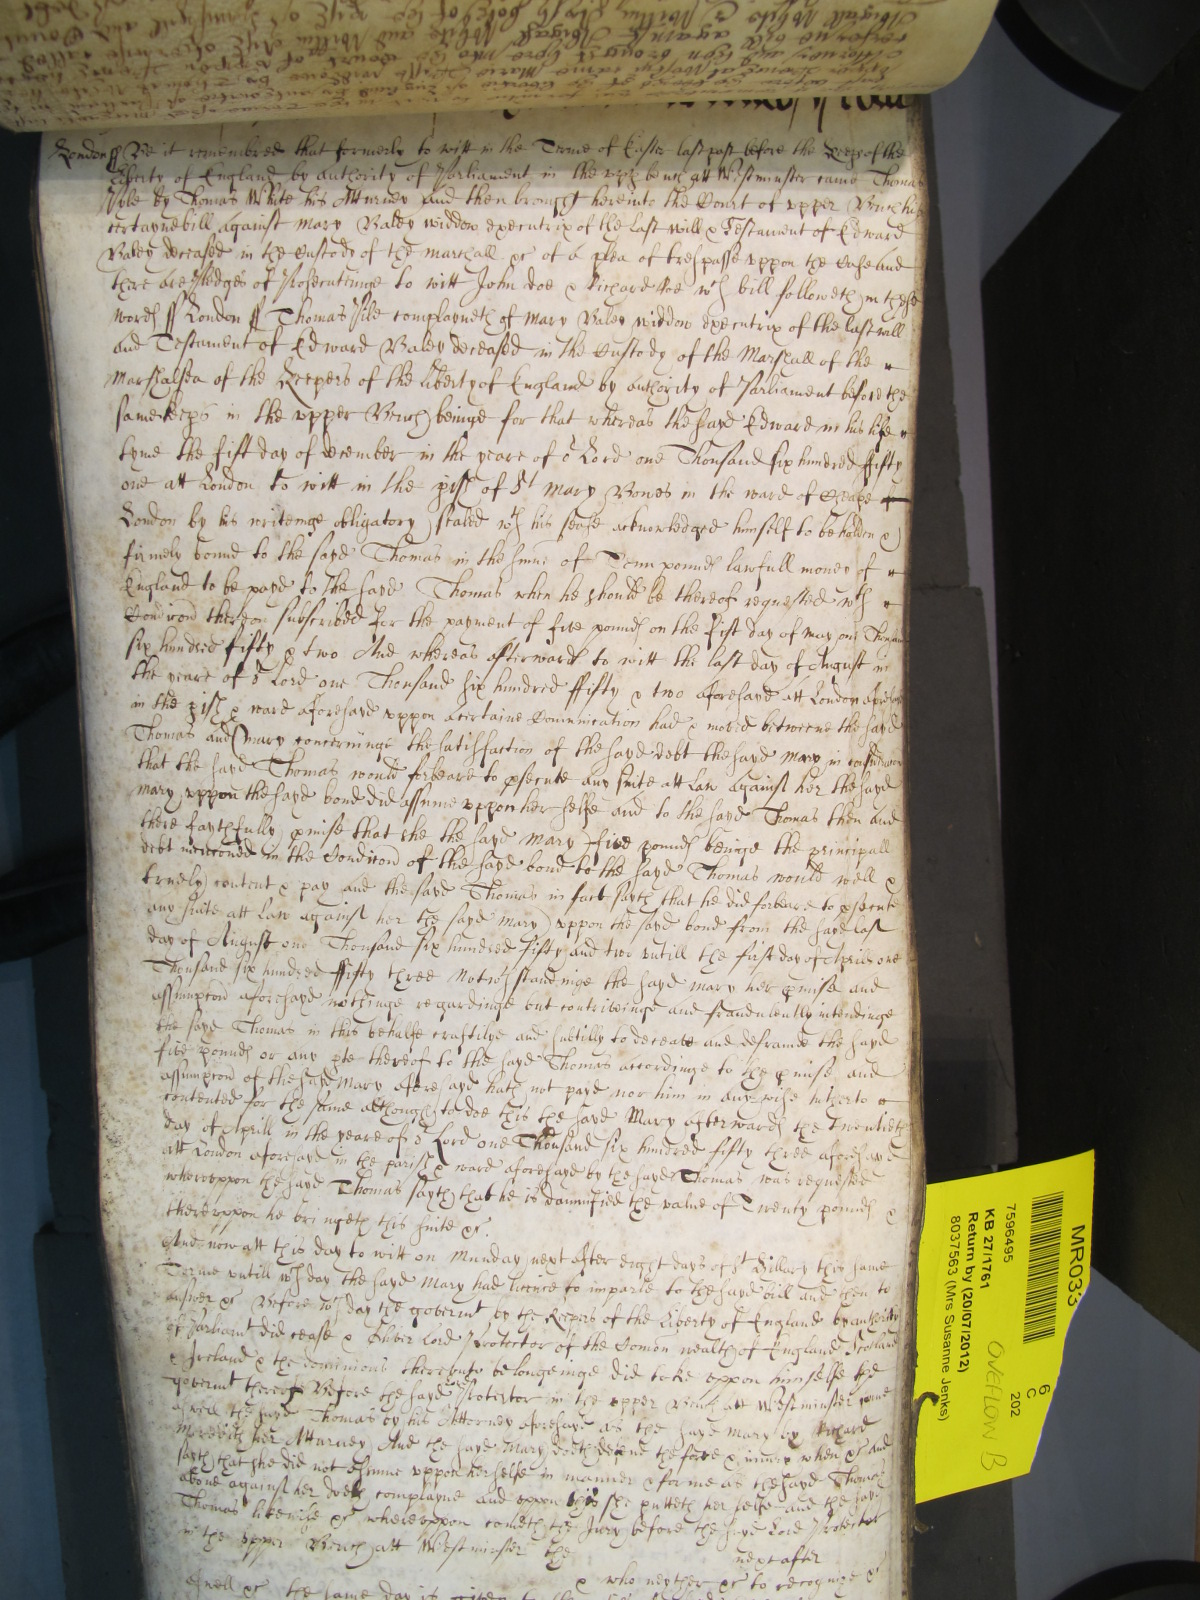 London ff Be it remembred that formerly to witt in the Terme of Easter last past before the Keeps of the
liberty of England by authority of Parliament in the upp bench att Westminster came Thomas
by Thomas White his Atturney and then brought here into the Court of upper Bench his
certayne bill against Mary Baley widdow executrix of the last will & Testament of Edward
Baley deceased in the Custody of the marshall &c of a plea of trespasse uppon the Case and
there are pledges of Prosecutinge to witt John doe & Richard Roe wch bill followeth in these
words ff London ff Thomas complayneth of Mary Baley widdow executrix of the last will
and Testament of Edward Baley deceased in the Custody of the Marshall of the
Marshalsea of the Keepers of the liberty of England by authority of Parliament before the
same Keeps in the upper Bench beinge for that whereas the sayd Edward in his life
tyme the first day of december in the yeare of or Lord one Thousand six hundred ffifty
one att London to witt in the pish of St Mary Bowes in the ward of Cheape
London by his writeinge obligatory sealed wth his seale acknowledged himself to be holden &
firmely bound to the sayd Thomas in the sume of Tenn pounds lawfull money of
England to be payd to the sayd Thomas when he should be thereof requested wth
Condicion thereon subscribed for the payment of five pounds on the first day of may one Thousand
six hundred fifty & two And whereas afterwards to witt the last day of August in
the yeare of or Lord one Thousand six hundred ffifty & two aforesayd att London aforesayd
in the pish & ward aforesayd uppon a certaine Communication had & moved betweene the sayd
Thomas and Mary concerninge the satisfaction of the sayd debt the sayd Mary in consideracion
that the sayd Thomas would forbeare to psecute any suite att Law against her the sayd
Mary uppon the sayd bond did assume uppon her selfe and to the sayd Thomas then and
there faythfully pmise that she the sayd Mary five pounds beinge the principall
debt mencioned in the Condicion of the sayd bond to the sayd Thomas would well &
truely content & pay and the sayd Thomas in fact sayth that he did forbeare to psecute
any suite att Law against her the sayd Mary uppon the sayd bond from the sayd last
day of August one Thousand six hundred fifty and two untill the first day of Aprill one
Thousand six hundred ffifty three Notwthstandinge the sayd Mary her pmise and
assumpcion aforesayd nothinge regardinge but contriveinge and fraudulently intendinge
the sayd Thomas in this behalfe craftilye and subtilly to deceave and defraude the sayd
five pounds or any pte thereof to the sayd Thomas accordinge to the pmise and
assumpcion of the sayd Mary aforesayd hath not payd nor him in any wise hitherto
contented for the same although to doe this the sayd Mary afterwards the twentieth
day of Aprill in the yeare of or Lord one Thousand six hundred fifty three aforesayd
att London aforesayd in the parish & ward aforesayd by the sayd Thomas was requested
whereuppon the sayd Thomas sayth that he is damnified the value of Twenty pounds &
thereuppon he bringeth this suite &c.
And now att this day to witt on Munday next after eight days of St Hillary this same
Terme untill wch day the sayd Mary had licence to imparle to the sayd bill and then to
answer &c Before wch day the governmt by the Keepers of the Liberty of England by authority
of Parliamt did cease & Oliver Lord Protector of the Comon wealth of England Scotland
& Ireland & the dominions thereunto belongeinge did take uppon himselfe the
governmt thereof Before the sayd Lord Protector in the upper Bench att Westminster come
aswell the sayd Thomas by his Attorney aforesayd as the sayd Mary by Richard
Meredith her Atturney And the sayd Mary doeth defend the force & iniury when &c And
sayth that she did not assume uppon herselfe in manner & forme as the sayd Thomas
above against her doeth complayne and uppon this she putteth her selfe and the sayd
Thomas likewise &c whereuppon cometh the Jury before the sayd Lord Protector
in the upper Bench att Westminster the next after
& who neyther &c to recognize &c
aswell &c the same day is given to the
MR033
7596495
KB 27/1761
Return by (20/07/2012)
8037563 (Mrs Susanne Jenks)
6
C
202
OVEFLOW B